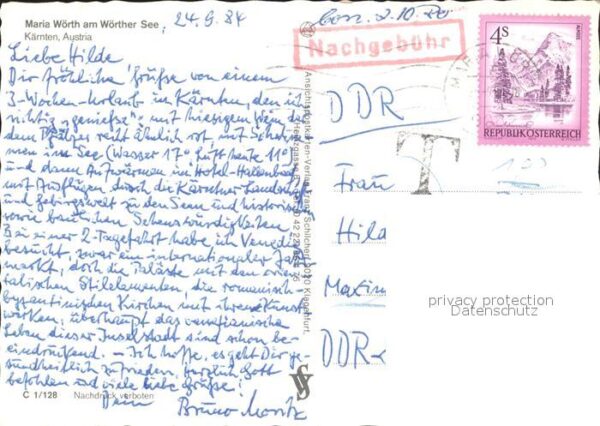 Maria Wörth am Wörther See , 24.9.84
Kärnten, Austria
Liebe Hilde
Dir fröhliche Grüße von einem
3-Wochen-Urlaub in Kärnten, den ich
richtig „genieße" mit
recht ähnlich mit Schwim-
men im See (Wasser 17° Luft heute 11°)
und dann Aufwärmen im Hotel-Hallenbad
mit Ausflügen durch die Kärntner Landschaft
und Gebirgswelt zu den Seen und historischen
sowie baulichen Sehenswürdigkeiten
Bei einer 2-Tagefahrt habe ich Venedig
besucht, zwar ein internationaler Jahr-
markt, doch die Paläste mit den orien-
talischen Stilelementen, die romanisch-
byzantinischen Kirchen mit ihren Kunst-
werken, überhaupt das venezianische
Leben dieser Inselstadt sind schon be-
eindruckend. – Ich hoffe, es geht Dir ge-
sundheitlich zufrieden. Herzlich Gott
befohlen und viele liebe Grüße!
Dein Bruno Moritz
C 1/128 Nachdruck verboten
Nachgebühr
4S
ALMSEE
REPUBLIK ÖSTERREICH
T
DDR
Frau
Hild
Maxim
DDR-
privacy protection
Datenschutz